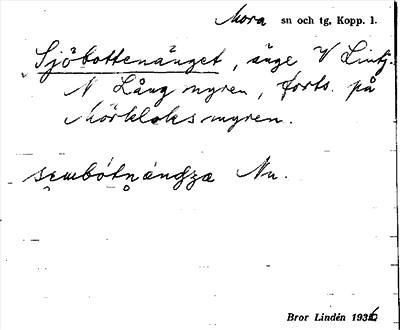 Mora sn och tg, Kopp. l.
Sjöbottenänget, änge V Lintj.
N Långmyren, forts. på
Mörkloksmyren.
sɛmbótnáŋdza Nu.
Bror Lindén 1936